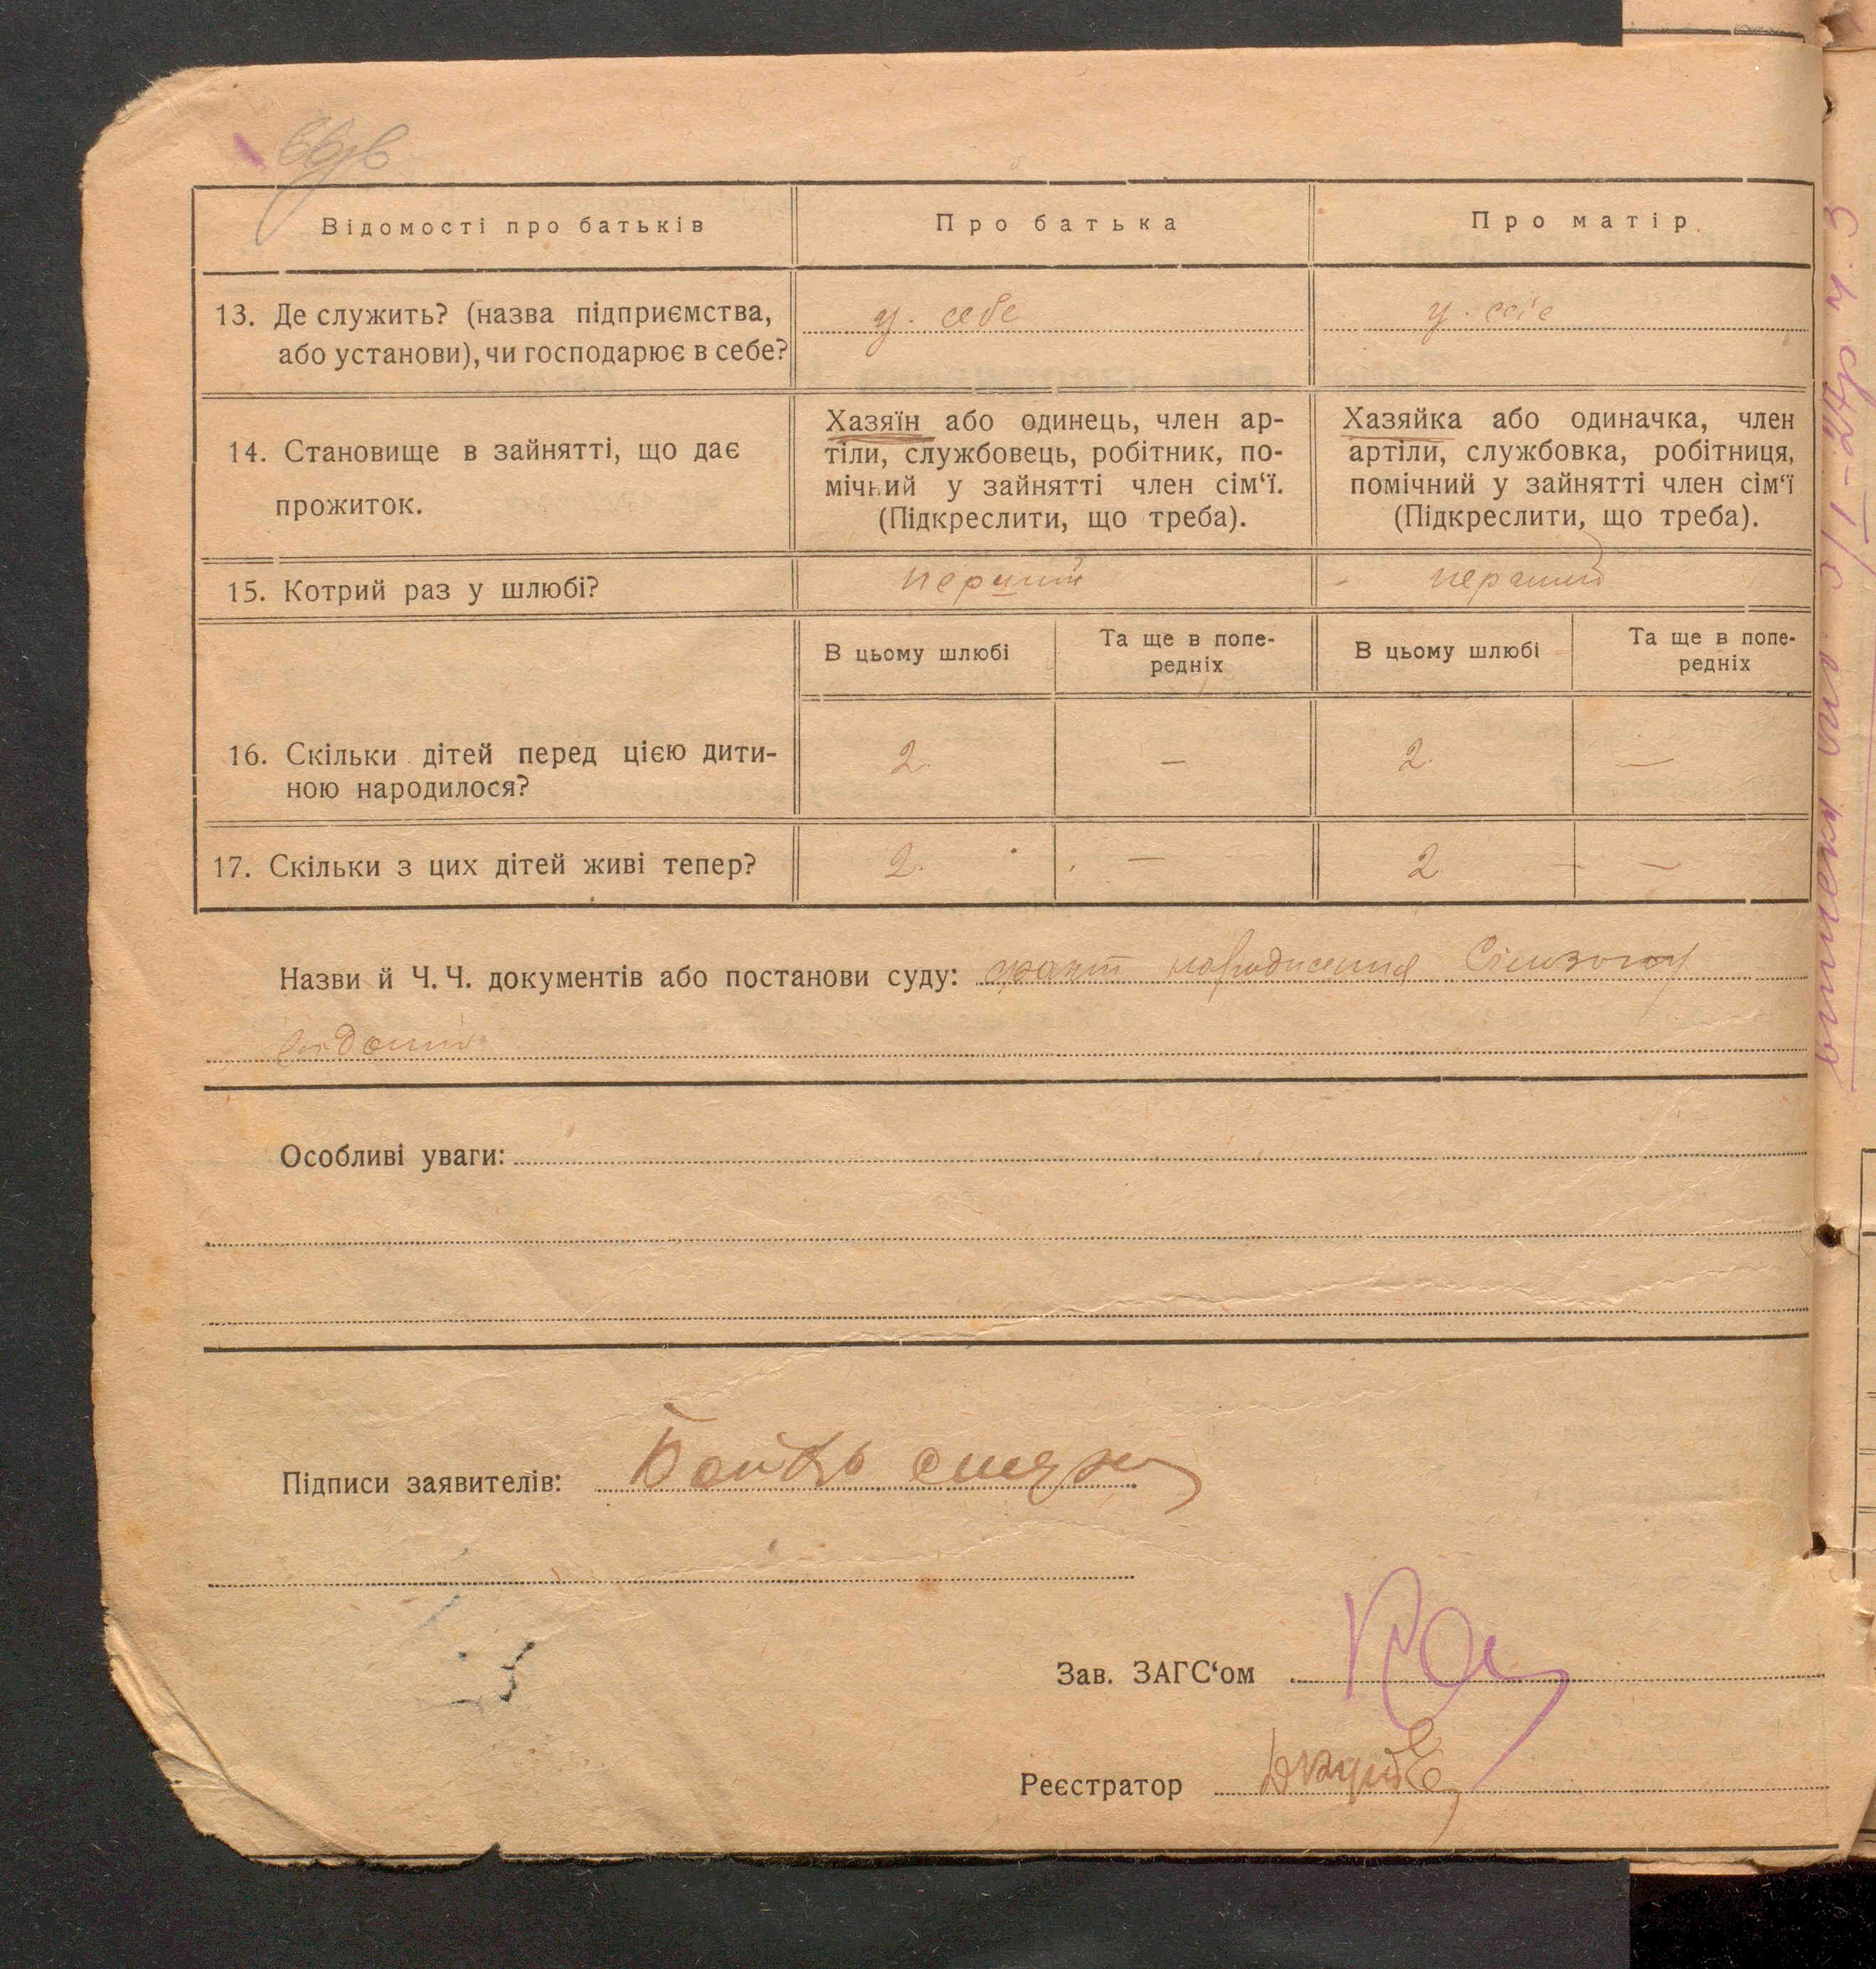 Відомості про батьків
Про батька
Про матір.
13. Де служить? (назва підприємства,
або установи), чи господарює в себе?
у. себе
у. себе
14. Становище в зайнятті, що дає
прожиток.
Хазяїн або одинець, член ар-
тіли, службовець, робітник, по-
мічний у зайнятті член сім‘ї.
(Підкреслити, що треба).
Хазяйка або одиначка, член
артіли, службовка, робітниця,
помічний у зайнятті член сім‘ї
(Підкреслити, що треба).
15. Котрий раз у шлюбі?
перший
перший
В цьому шлюбі
Та ще в попе-
редніх
В цьому шлюбі
Та ще в попе-
редніх
16. Скільки дітей перед цією дити-
ною народилося?
2.
—
2.
—
17. Скільки з цих дітей живі тепер?
2.
—
2
—
Назви й Ч. Ч. документів або постанови суду: факт народження
Особливі уваги:
Підписи заявителів:
Зав. ЗАГС‘ом
Реєстратор